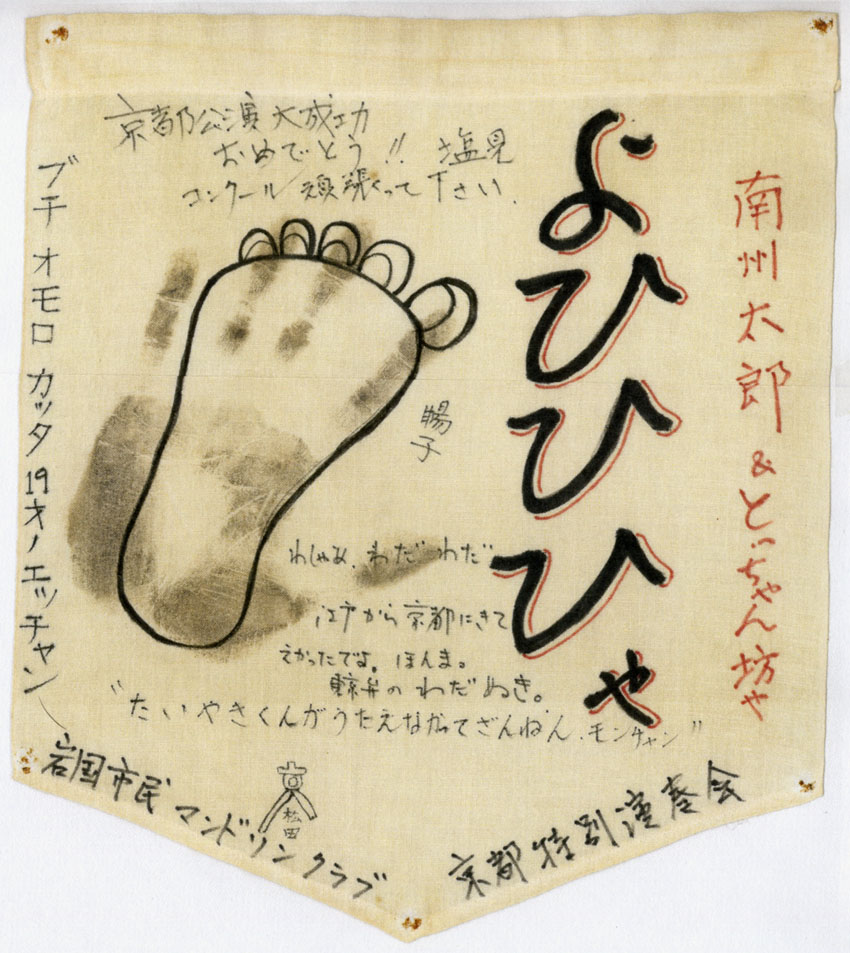 京都公演大成功
おめでとう!! 塩見
コンクール頑張って下さい.
よひひひゃ
南州太郎&とっちゃん坊や
ブチオモロカッタ19才ノエッチャン
陽子
わしゃぁ、わだ わだ
江戸から京都にきて
えかったでよ。ほんま。
弁の わだ ぬき。
"たいやきくんがうたえなかってざんねん.モンチャン"
松田
岩国市民マンドリンクラブ
京都特別演奏会